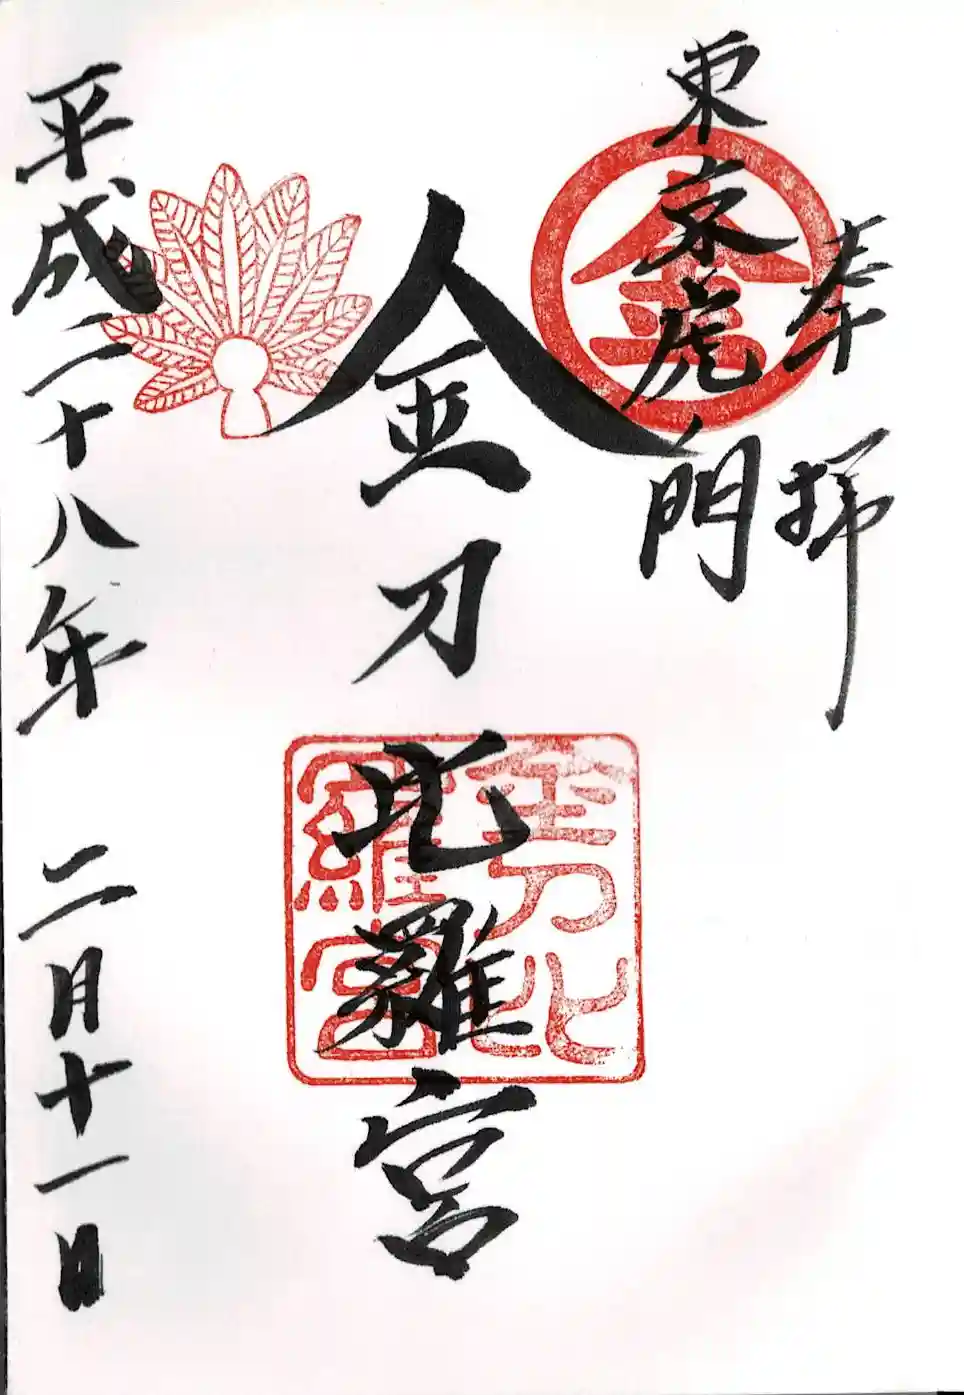 奉拝
東京虎門
金
金刀比羅宮
金刀比羅宮
平成二十八年 二月十一日